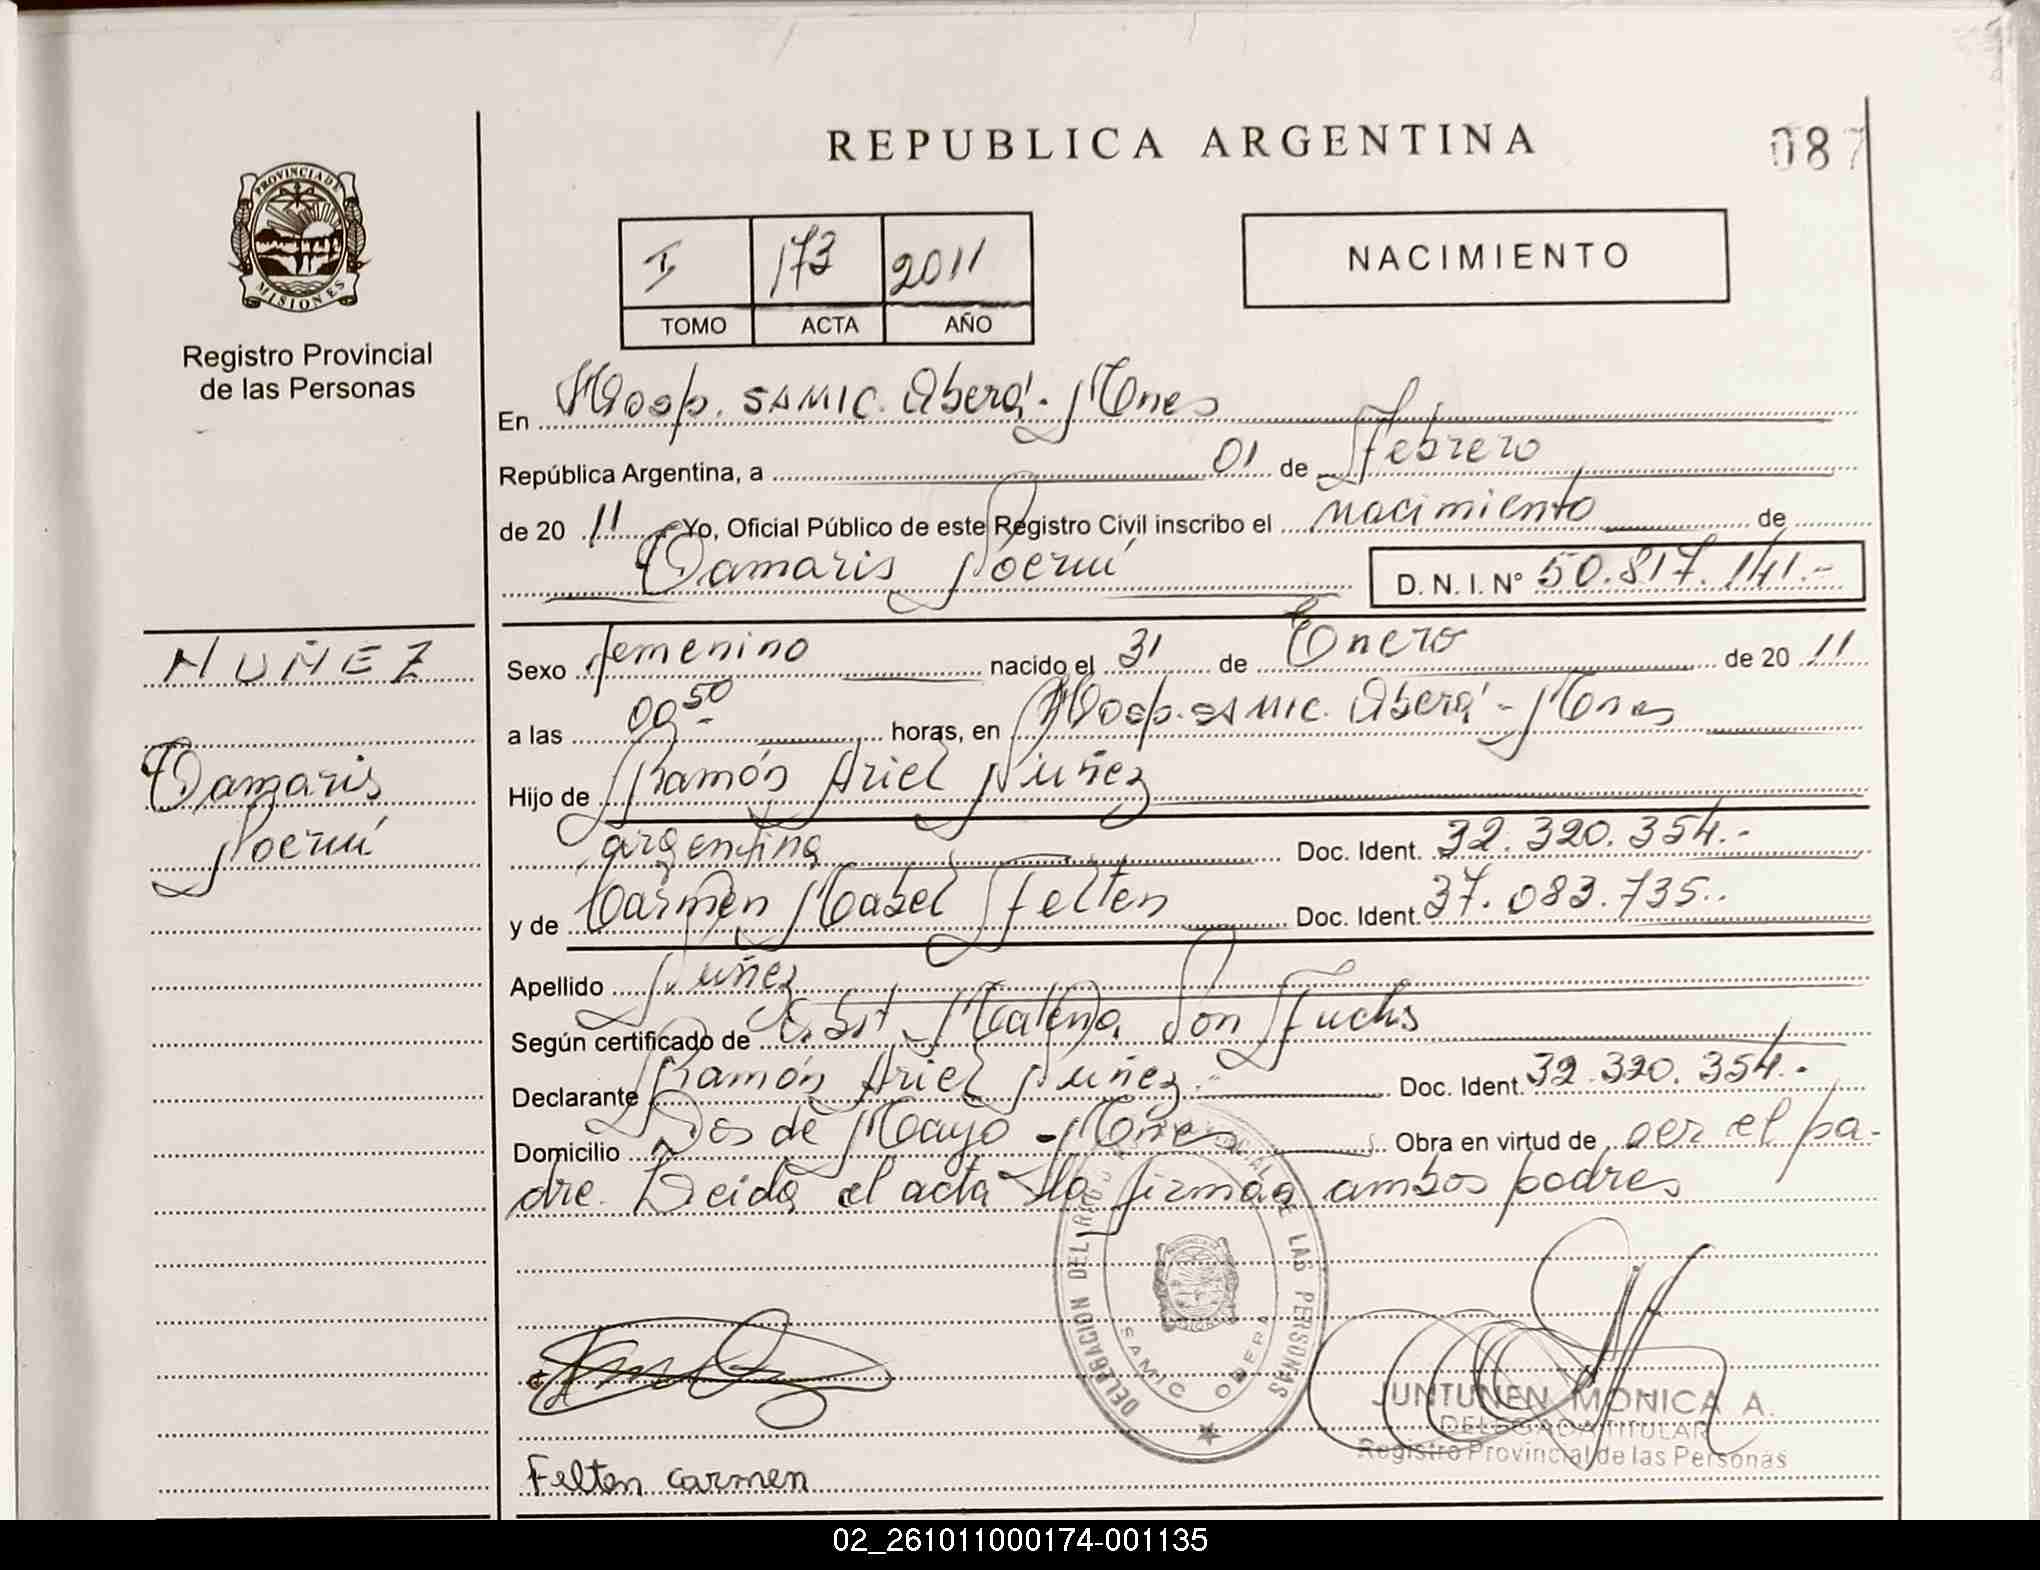 REPUBLICA ARGENTINA
087
PROVINCIA DE
MISIONES
Registro Provincial
de las Personas
I 173 2011
TOMO ACTA AÑO
NACIMIENTO
En Hosp. SAMIC. Oberá - Mnes
República Argentina, a 01 de Febrero
de 20 11 Yo, Oficial Público de este Registro Civil inscribo el nacimiento de
Damaris Noemí D. N. I. N° 50.817.141.-
NUÑEZ
Damaris
Noemí
Sexo femenino nacido el 31 de Enero de 20 11
a las 09 50 horas, en Hosp. SAMIC. Oberá - Mnes
Hijo de Ramón Ariel Núñez
argentina Doc. Ident. 32.320.354.-
y de Carmen Mabel Felten Doc. Ident. 37.083.735.-
Apellido Núñez
Según certificado de Obst. Von Fuchs
Declarante Ramón Ariel Núñez Doc. Ident. 32.320.354.-
Domicilio Dos de Mayo - Mnes Obra en virtud de ser el pa-
dre. Leida el acta la firman ambos padres
DELEGACION DEL REGISTRO PROVINCIAL DE LAS PERSONAS
SAMIC OBERA
JUNTUNEN MONICA A.
DELEGADA TITULAR
Registro Provincial de las Personas
Felten carmen
02_261011000174-001135